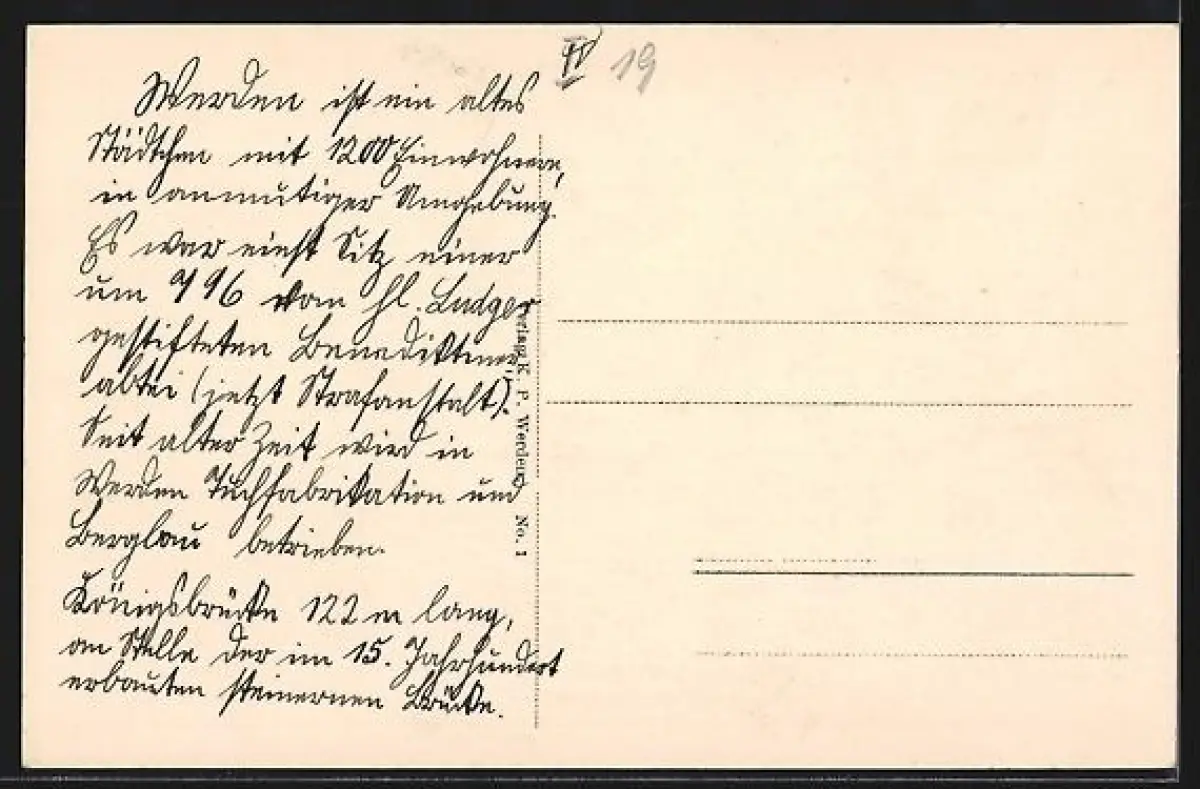 IV 19
Werden ist ein altes
Städtchen mit 1200 Einwohnern,
in anmutiger Umgebung.
Es war einst Sitz einer
um 796 vom hl. Ludger
gestifteten Benediktiner
abtei (jetzt Strafanstalt).
Seit alter Zeit wird in
Werden Tuchfabrikation und
Bergbau betrieben.
Königsbrücke 122 m lang,
an Stelle der im 15. Jahrhundert
erbauten steinernen Brücke.
Verlag K. P. Werden No. 1